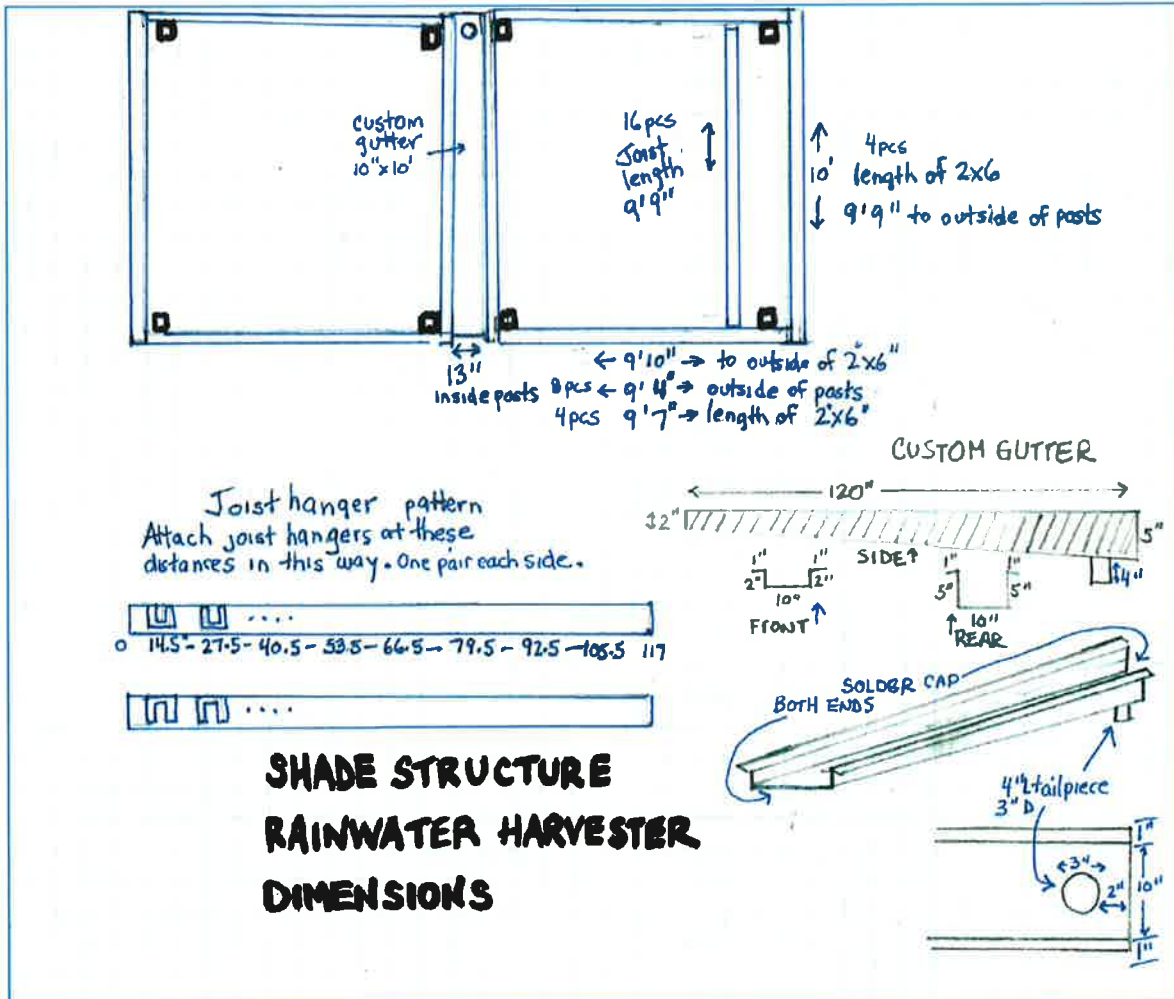 custom
gutter
10"x10'
16pcs
Joist
length
9'9"
4pcs
10' length of 2x6
9'9" to outside of posts
13"
inside posts
← 9'10" → to outside of 2"x6"
8pcs ← 9'4" → outside of posts
4pcs 9'7" → length of 2"x6"
CUSTOM GUTTER
120"
2"
5"
SIDE↑
4"
1" 1"
2" 2"
10"
FRONT↑
1" 1"
5" 5"
10"
↑REAR
Joist hanger pattern
Attach joist hangers at these
distances in this way. One pair each side.
0 14.5" - 27.5 - 40.5 - 53.5 - 66.5 - 79.5 - 92.5 - 105.5 117
SOLDER CAP
BOTH ENDS
4"L tailpiece
3" D
1"
3"
2"
10"
1"
SHADE STRUCTURE
RAINWATER HARVESTER
DIMENSIONS